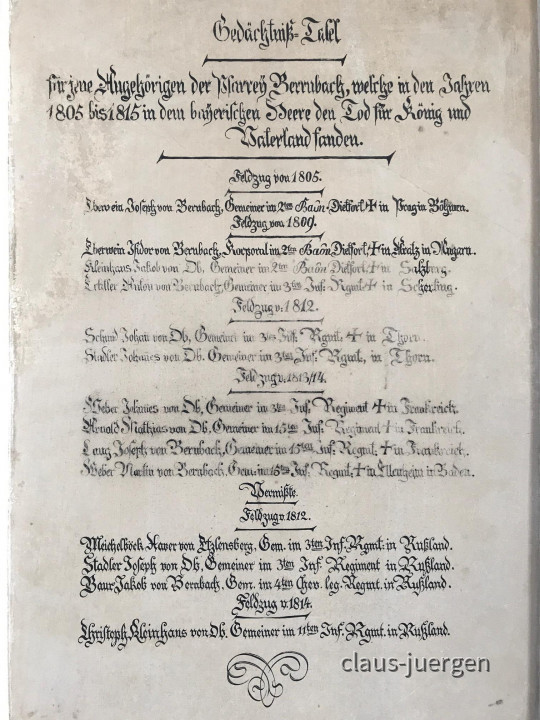 Gedächtniß-Tafel
für jene Angehörigen der Pfarrey Bernbach, welche in den Jahren
1805 bis 1815 in dem bayerischen Heere den Tod für König und
Vaterland fanden.
Feldzug von 1805.
Eberwein Joseph von Bernbach, Gemeiner im 2ten Baon Dietfort † in Prag in Böhmen.
Feldzug von 1809.
Eberwein Isidor von Bernbach, Korporal im 2ten Baon Dietfort, † in Kratz in Ungarn.
Kleinhans Jakob von Ob, Gemeiner im 2ten Baon Dietfort † in Salzburg.
von Bernbach, Gemeiner im 3ten Inf: Rgmt † in Scherling.
Feldzug v. 1812.
Schmid Johan von Ob, Gemeiner im 3ten Inf: Rgmt: † in Thorn.
Sindler Johannes von Ob, Gemeiner im 3ten Inf: Rgmt, in Thorn.
Feldzug v. 1813/14.
Weber Johannes von Ob, Gemeiner im 3ten Inf: Regiment † in Frankreich.
Arnold Matthias von Ob, Gemeiner im 15ten Inf: Regiment † in Frankreich.
Lang Joseph von Bernbach, Gemeiner im 15ten Inf: Regmt: † in Frankreich.
Weber Martin von Bernbach, Gem: im 15ten Inf: Regmt: † in Ettenheim in Baden.
Vermißte.
Feldzug v. 1812.
Meichelböck Xaver von Etzlensberg, Gem. im 3ten Inf: Rgmt: in Rußland.
Stadler Joseph von Ob, Gemeiner im 3ten Inf: Regiment in Rußland.
Baur Jakob von Bernbach, Gem. im 4ten Chev. leg-Regmt. in Rußland.
Feldzug v. 1814.
Christoph Kleinhans von Ob, Gemeiner im 11ten Inf. Rgmt. in Rußland.
claus-juergen